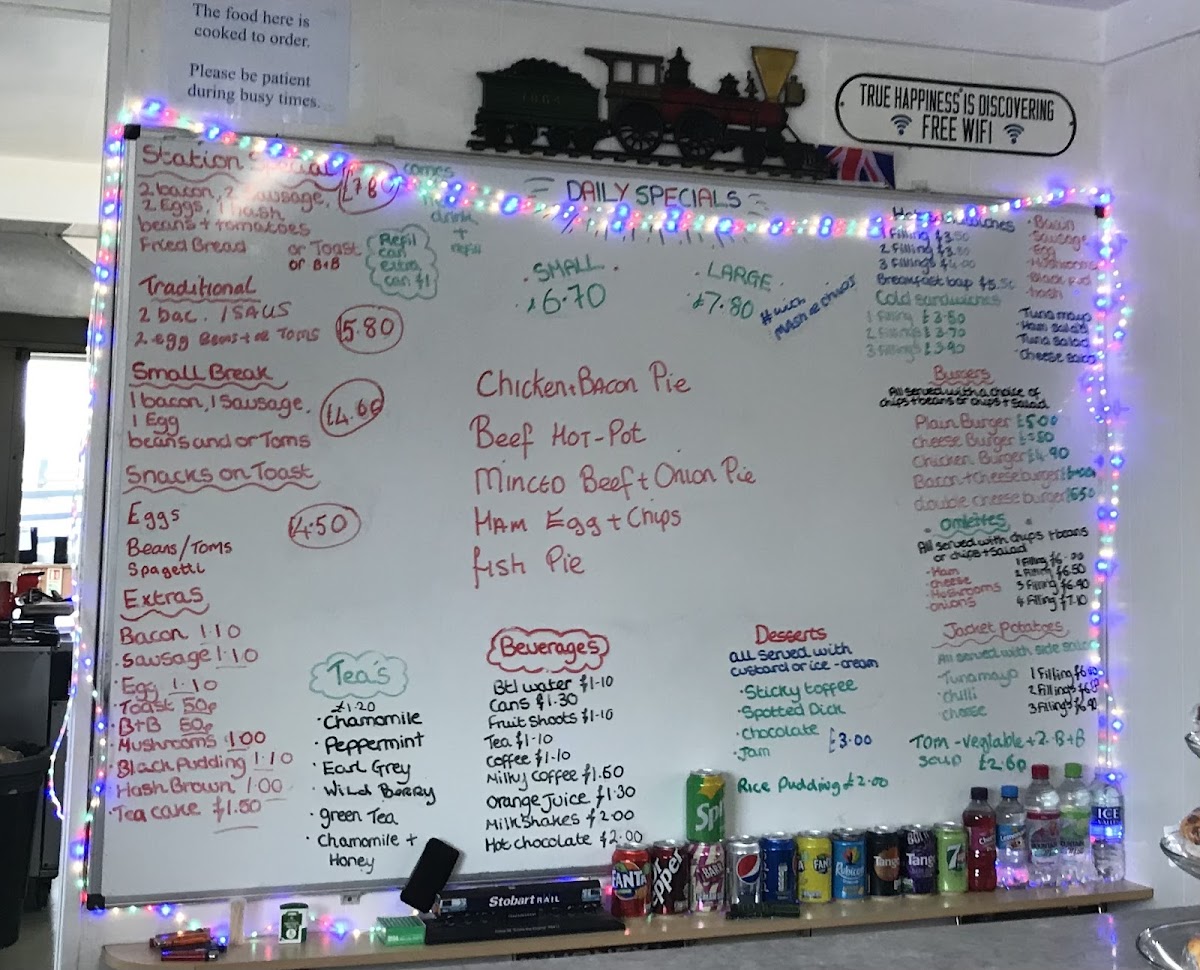 The food here is
cooked to order.
Please be patient
during busy times.
TRUE HAPPINESS IS DISCOVERING
FREE WIFI
DAILY SPECIALS
Station Special £7.80
2 bacon, 2 Sausage,
2 Eggs, 1 hash
beans + tomatoes
Fried Bread or Toast
or B+B
comes
drink
+
refill
Refil
can
extra
can £1
Traditional
2 bac. 1 SAUS
2 egg Beans + or Toms
£5.80
Small Break
1 bacon, 1 Sausage,
1 Egg
beans and or Toms
£4.60
Snacks on Toast
Eggs
£4.50
Beans/Toms
Spagetti
Extras
Bacon 1.10
Sausage 1.10
Egg 1.10
Toast 50p
B+B 50p
Mushrooms 1.00
Black Pudding 1.10
Hash Brown 1.00
Tea cake £1.50
SMALL
£6.70
LARGE
£7.80
# with
MASH or chips
Chicken + Bacon Pie
Beef Hot-Pot
Minced Beef + Onion Pie
Ham Egg + Chips
fish Pie
Tea's
£1.20
Chamomile
Peppermint
Earl Grey
Wild Berry
green Tea
Chamomile +
Honey
Beverages
Btl water £1.10
Cans £1.30
Fruit Shoots £1.10
Tea £1.10
Coffee £1.10
Milky Coffee £1.60
Orange Juice £1.30
Milk Shakes £2.00
Hot chocolate £2.00
Desserts
all served with
custard or ice-cream
Sticky toffee
Spotted Dick
chocolate
Jam
£3.00
Rice Pudding £2.00
1 Filling £3.50
2 Filling £3.80
3 Fillings £4.00
Breakfast bap £5.50
Bacon
Sausage
Egg
Mushrooms
Black Pud
hash
Cold sandwiches
1 filling £3.50
2 fillings £3.70
3 fillings £3.90
Tuna mayo
Ham salad
Tuna salad
Cheese salad
Burgers
All served with a choice of
chips + beans or chips + Salad
Plain Burger £5.00
Cheese Burger
Chicken Burger £4.90
Bacon + Cheese burger
double cheese burger
Omlettes
All served with chips + beans
or chips + Salad
Ham
cheese
Mushrooms
onions
1 Filling
2 Filling £6.50
3 Filling £6.90
4 Filling £7.10
Jacket Potatoes
All served with side salad
Tuna mayo
Chilli
Cheese
1 Filling
2 Fillings
3 Fillings
Tom - vegtable + 2. B+B
Soup £2.60
Stobart RAIL
FANTA
Tango
7up
ICE